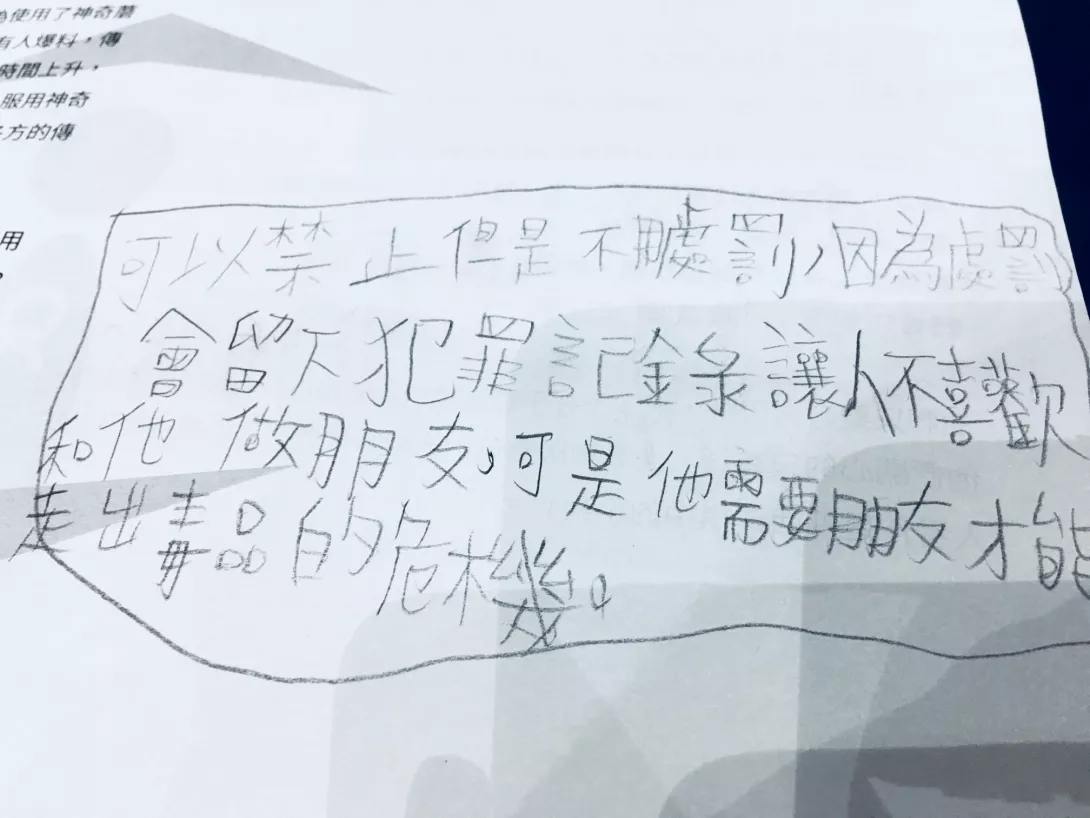 為使用了神奇蘑
有人爆料，傳
時間上升，
服用神奇
多方的傳
用
可以禁止但是不用處罰，因為處罰
會留下犯罪記錄讓人不喜歡
和他做朋友，可是他需要朋友才能
走出毒品的危機。